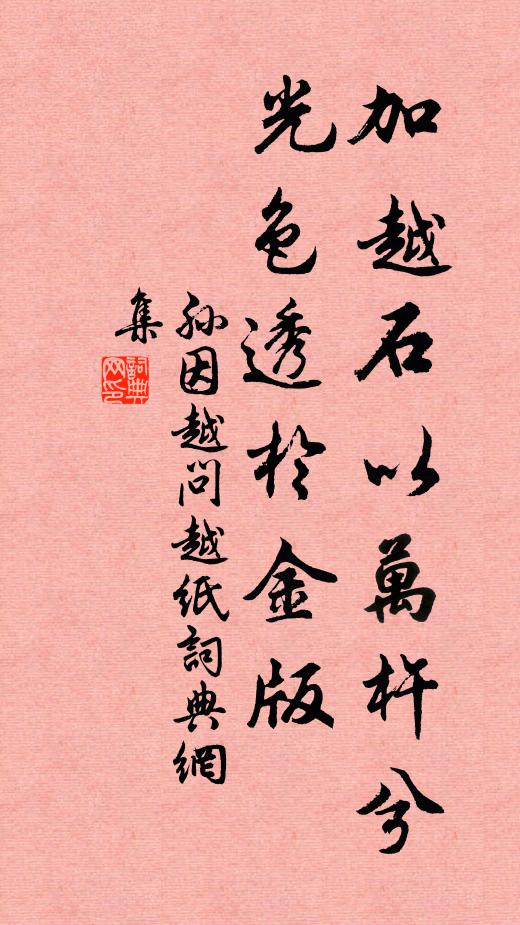 加越石以萬杵兮
光色透於金版
孫因越問越紙詞典網
集
詞典
网印